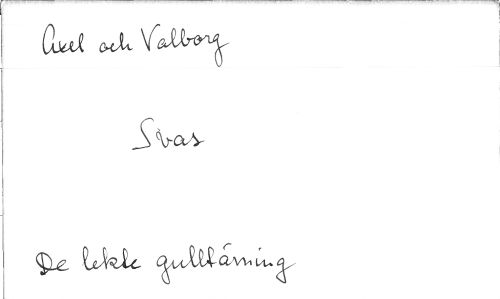 Axel och Valborg
Svas
De lekte gulltärning